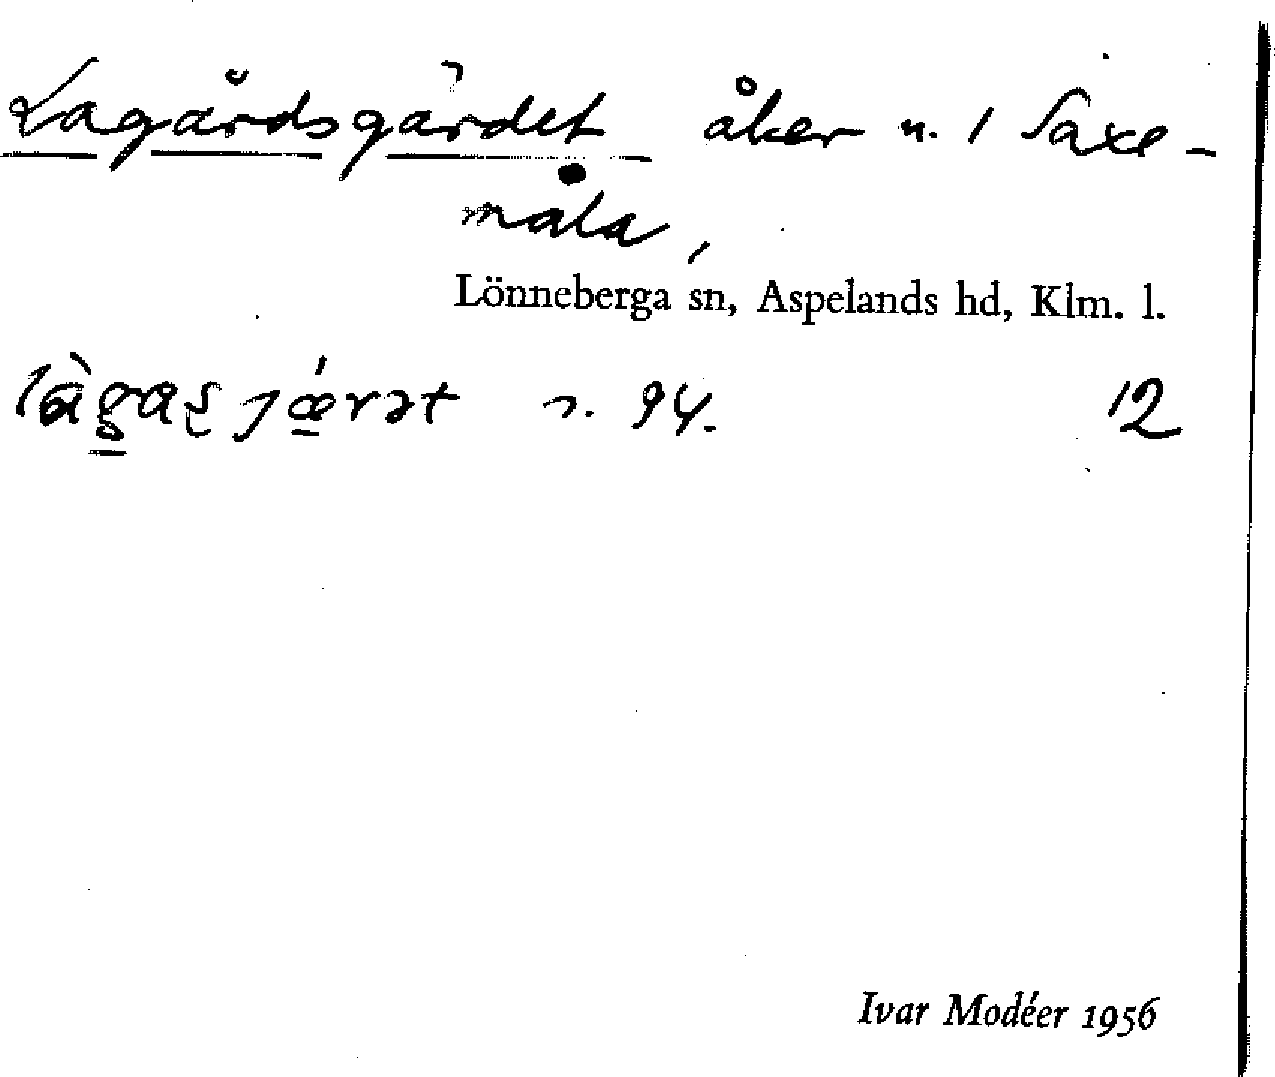 Lagårdsgärdet åker n. 1 Saxe-
måla,
Lönneberga sn, Aspelands hd, Klm. l.
n. 94. 12
Ivar Modéer 1956